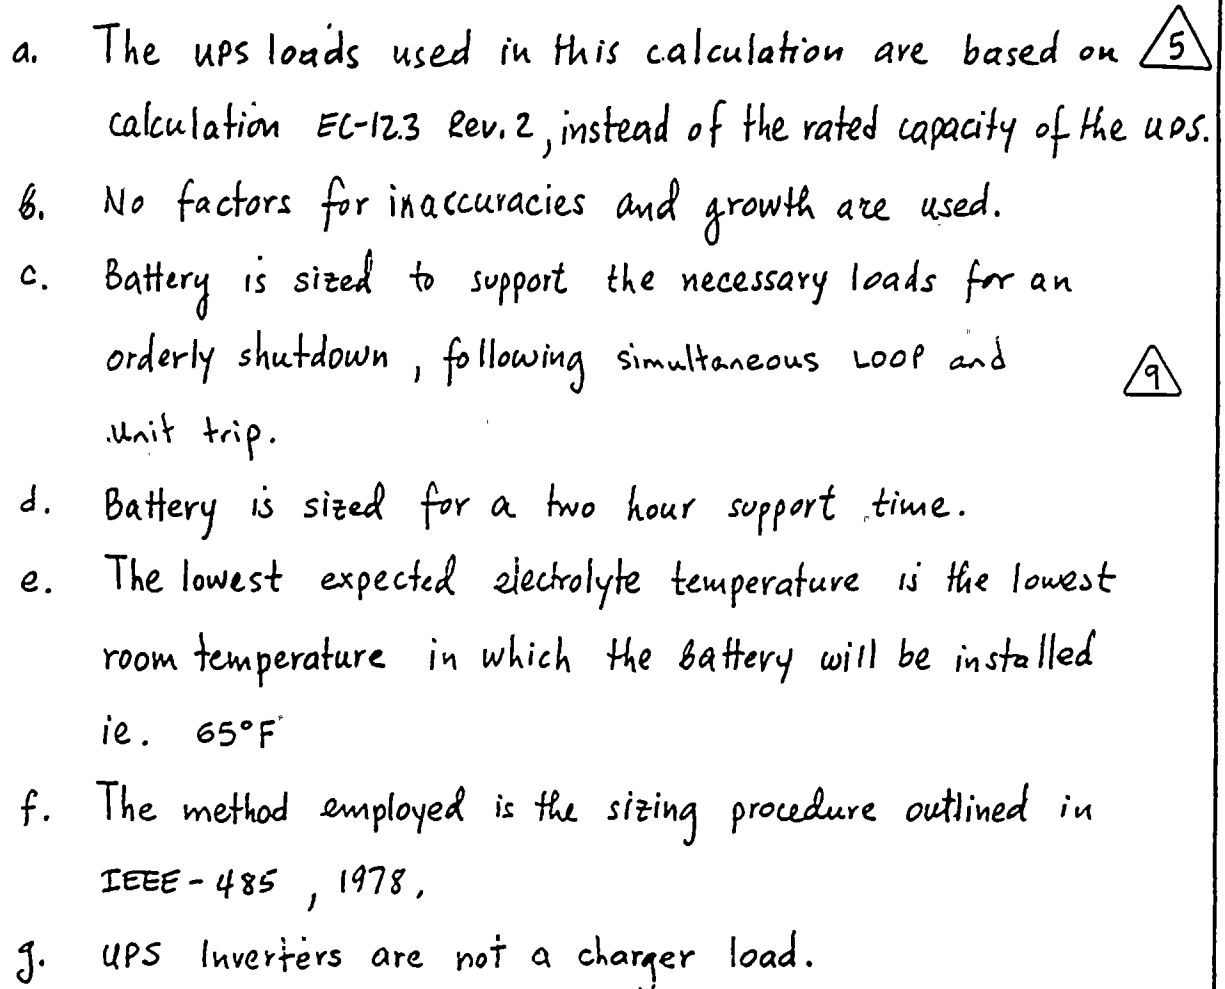 a. The UPS loads used in this calculation are based on 5
calculation EC-12.3 Rev. 2, instead of the rated capacity of the UPS.
b. No factors for inaccuracies and growth are used.
c. Battery is sized to support the necessary loads for an
orderly shutdown, following simultaneous LOOP and 9
unit trip.
d. Battery is sized for a two hour support time.
e. The lowest expected electrolyte temperature is the lowest
room temperature in which the battery will be installed
ie. 65°F
f. The method employed is the sizing procedure outlined in
IEEE-485, 1978.
g. UPS Inverters are not a charger load.